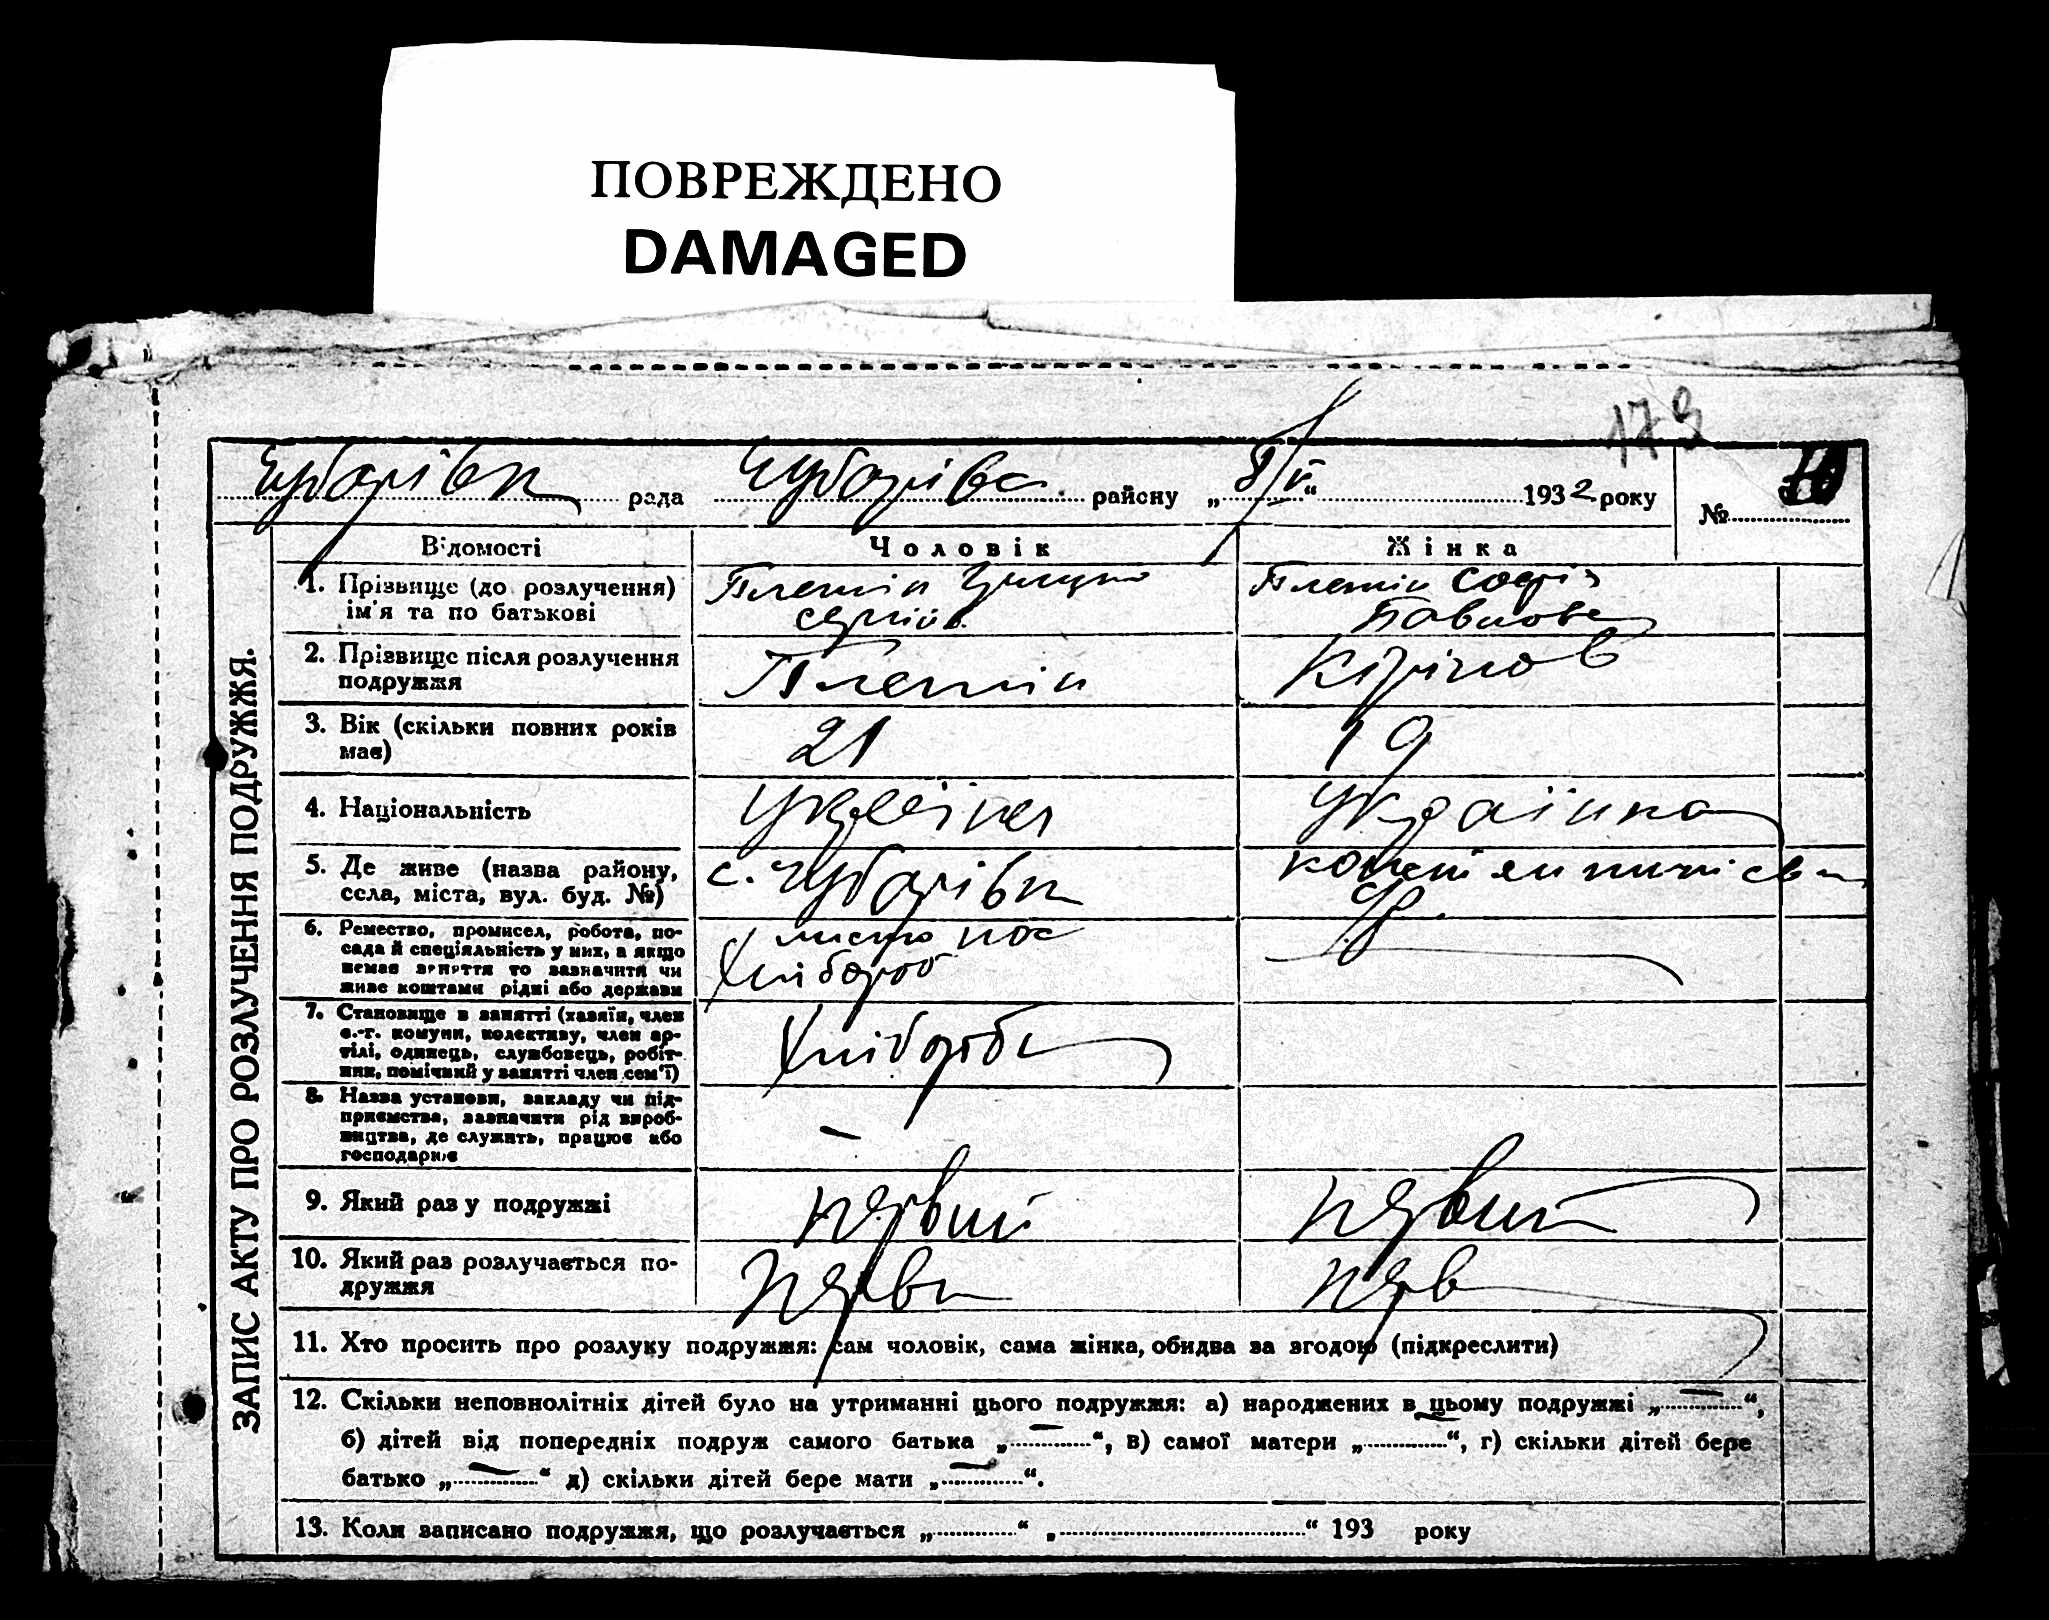 ПОВРЕЖДЕНО
DAMAGED
173
Чубарівк рада Чубарівс. району „8/V“ 1932 року № 10
Відомості Чоловік Жінка
1. Прізвище (до розлучення) ім'я та по батькові Плетін Грицко Сергіїв. Плетін Софія Павлова
2. Прізвище після розлучення подружжя Плетін Кірілов
3. Вік (скільки повних років має) 21 19
4. Національність Українец Українка
5. Де живе (назва району, села, міста, вул. буд. №) с. Чубарівк
6. Ремество, промисел, робота, посада й спеціяльність у них, а якщо немає зняття то зазначити чи живе коштами рідні або держави Хлібороб
7. Становище в занятті (хазяїн, член с.-г. комуни, колективу, член артілі, одинець, службовець, робітник, помічний у занятті член сем'ї) Хлібороб
8. Назва установи, закладу чи підприємства, зазначити рід виробництва, де служить, працює або господарює —
9. Який раз у подружжі первий первий
10. Який раз розлучається подружжя Перви перв
11. Хто просить про розлуку подружжя: сам чоловік, сама жінка, обидва за згодою (підкреслити)
12. Скільки неповнолітніх дітей було на утриманні цього подружжя: а) народжених в цьому подружжі „—“,
б) дітей від попередніх подруж самого батька „—“, в) самої матери „—“, г) скільки дітей бере
батько „—“ д) скільки дітей бере мати „—“.
13. Коли записано подружжя, що розлучається „ “ „ “ 193 року
ЗАПИС АКТУ ПРО РОЗЛУЧЕННЯ ПОДРУЖЖЯ.